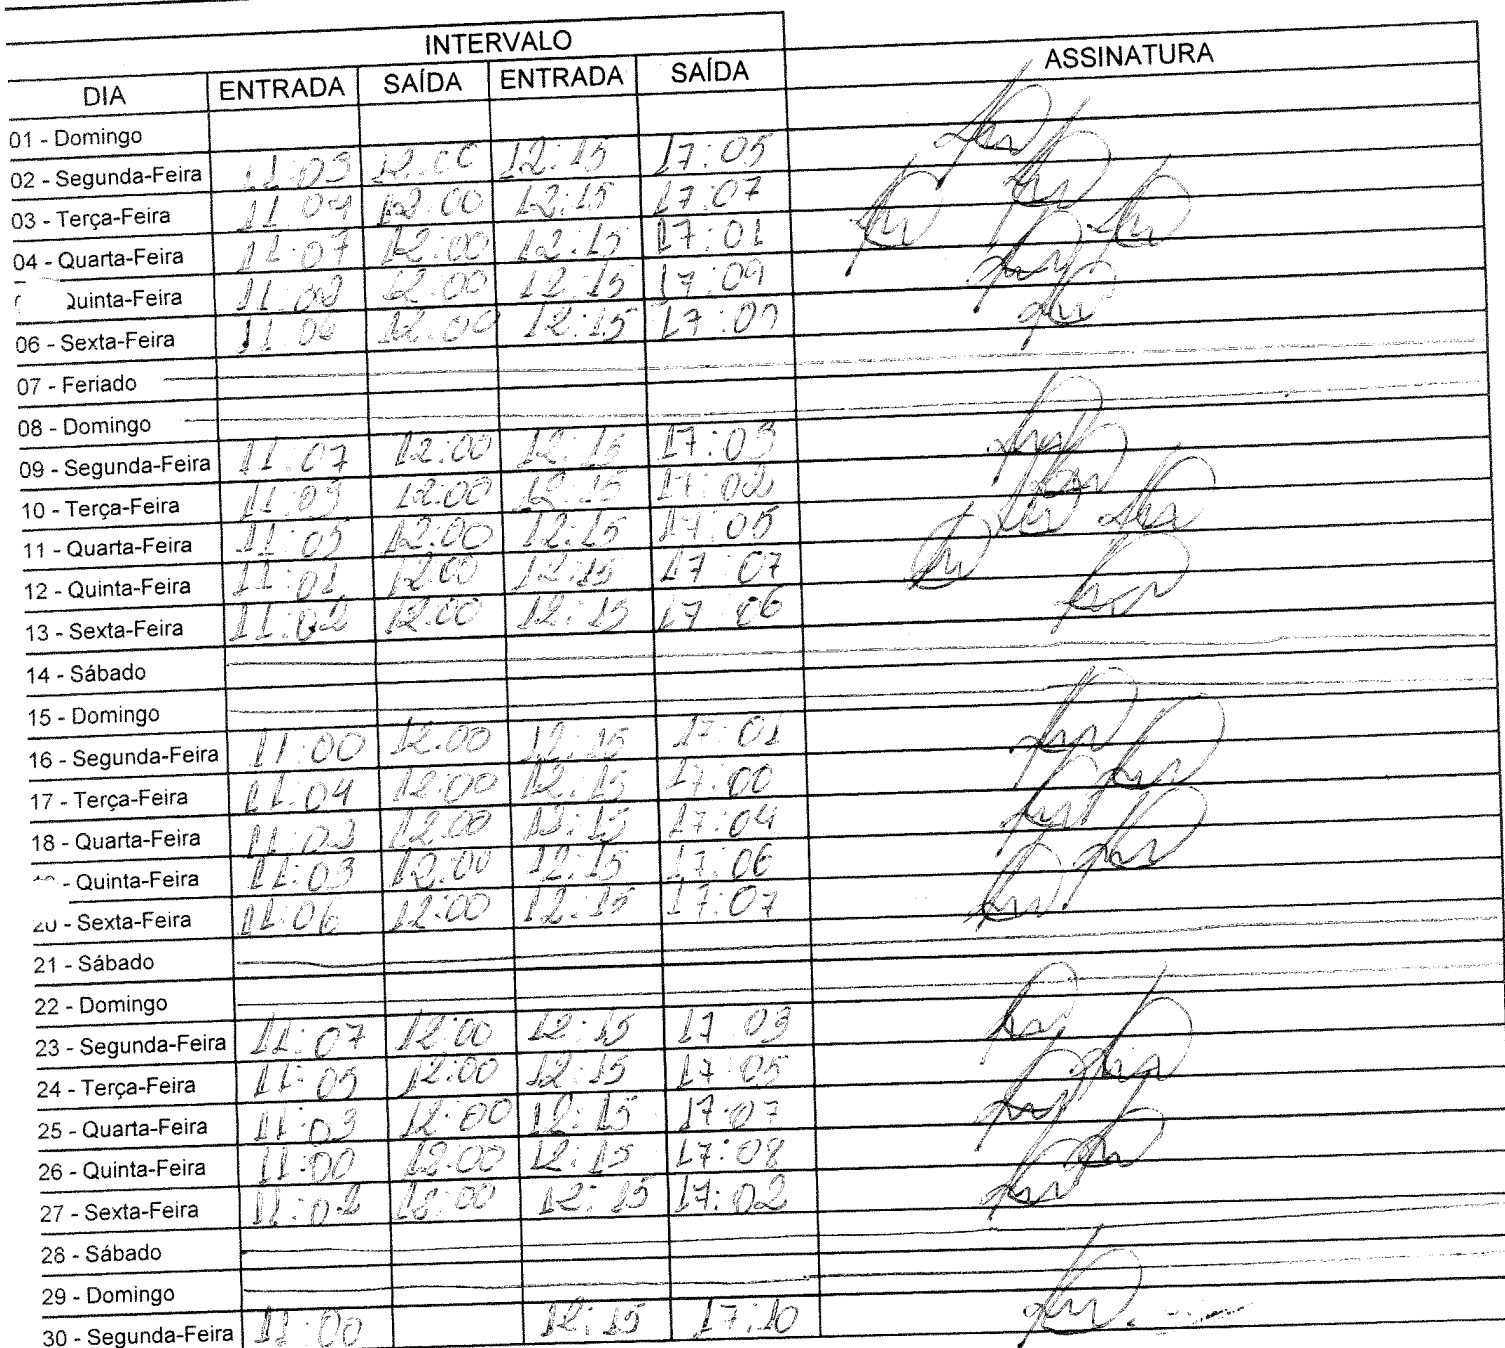 INTERVALO
DIA ENTRADA SAÍDA ENTRADA SAÍDA ASSINATURA
01 - Domingo
02 - Segunda-Feira 11:03 12:00 12:15 17:05
03 - Terça-Feira 11 04 12:00 12:15 17:07
04 - Quarta-Feira 11:07 12:00 12:15 17:01
Quinta-Feira 12:00 12:15 17:09
06 - Sexta-Feira 11 06 12:00 12:15
07 - Feriado
08 - Domingo
09 - Segunda-Feira 11:07 12:00 12:15 17:03
10 - Terça-Feira 11:03 12:00 12:15 17:02
11 - Quarta-Feira 11:05 12:00 12:15 17:05
12 - Quinta-Feira 11:01 12:00 12:15 17 07
13 - Sexta-Feira 11:02 12:00 12:15 17 06
14 - Sábado
15 - Domingo
16 - Segunda-Feira 11:00 12:00 12:15 17:01
17 - Terça-Feira 11:04 12:00 12:15 17:00
18 - Quarta-Feira 12:00 12:15 17:04
- Quinta-Feira 11:03 12:00 12:15 17:06
20 - Sexta-Feira 11:06 12:00 12:15 17:07
21 - Sábado
22 - Domingo
23 - Segunda-Feira 11:07 12:00 12:15 17 03
24 - Terça-Feira 11:05 12:00 12:15 17:05
25 - Quarta-Feira 11:03 12:00 12:15 17:07
26 - Quinta-Feira 11:00 12:00 12:15 17:08
27 - Sexta-Feira 11:02 12:00 12:15 17:02
28 - Sábado
29 - Domingo
30 - Segunda-Feira 11:00 12:15 17:10